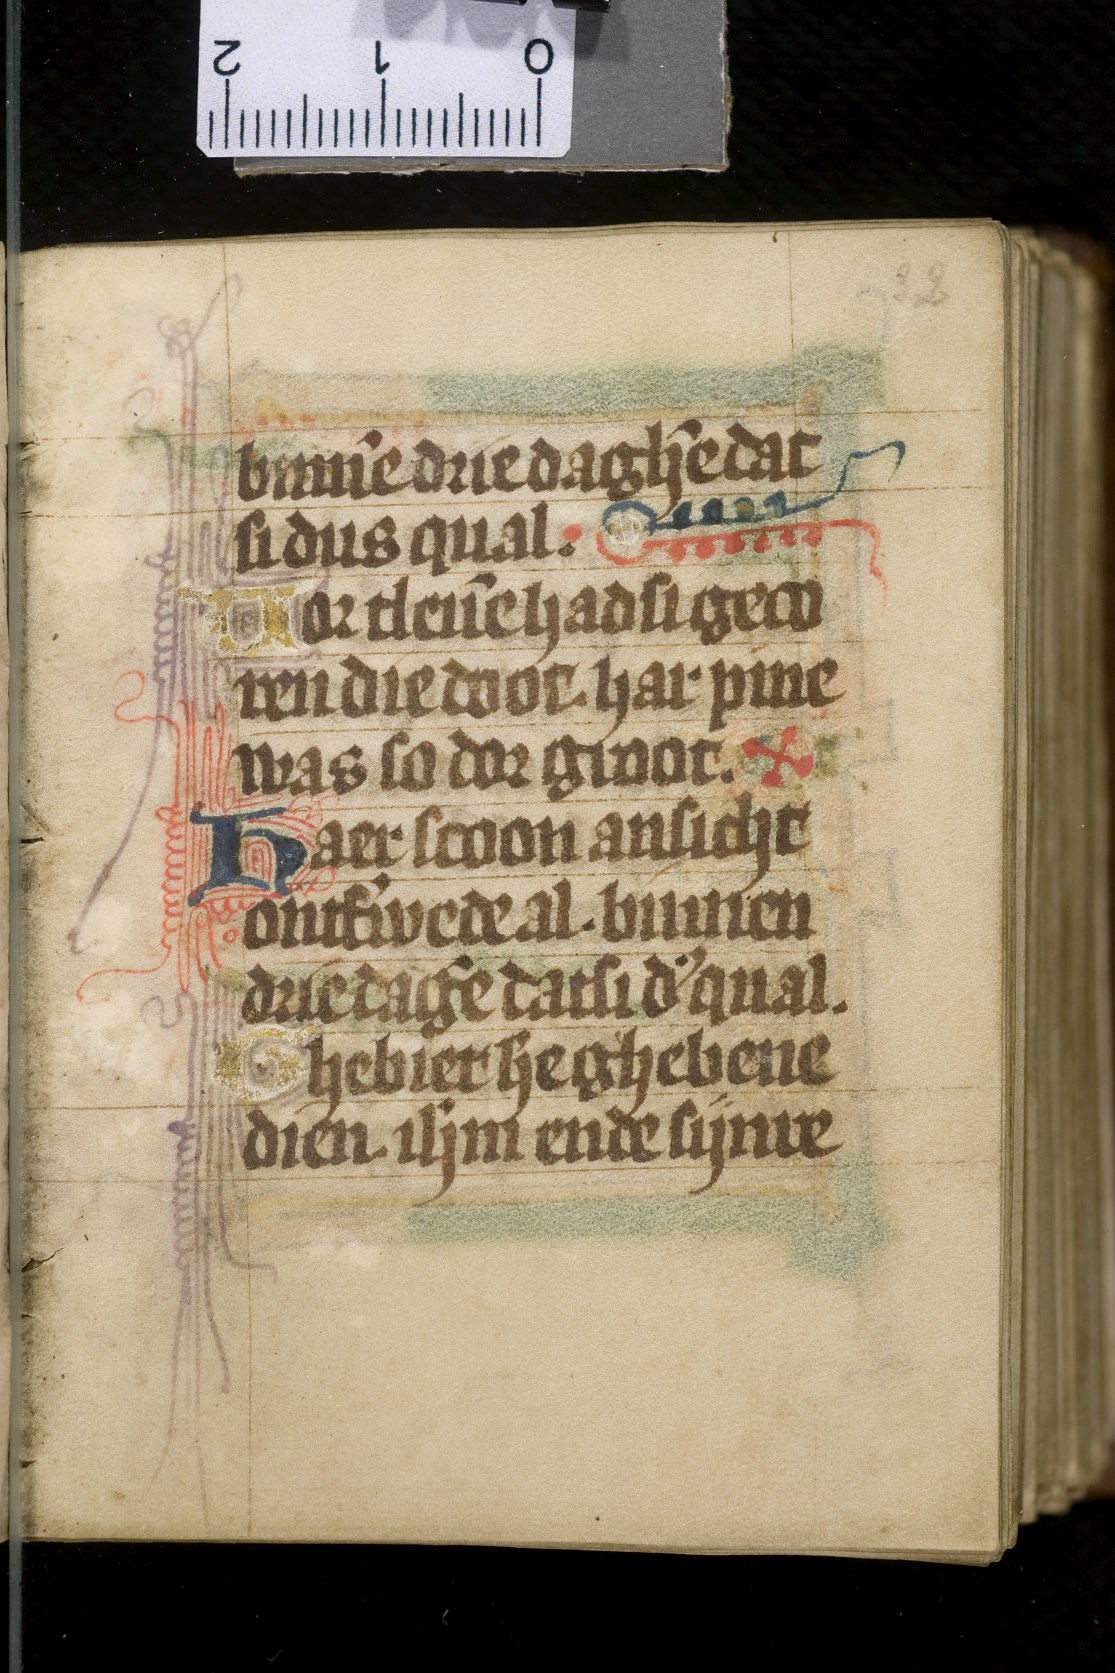 2 1 0
32
binnē drie daghē dat
si dus qual.
Vor tleuē had si geco
ren die doot. har pine
was so dor groot.
Haer scoon ansicht
al. binnen
drie dagē dat si d' qual.
Ghebiet hē ghebene
dien. ende sijnre